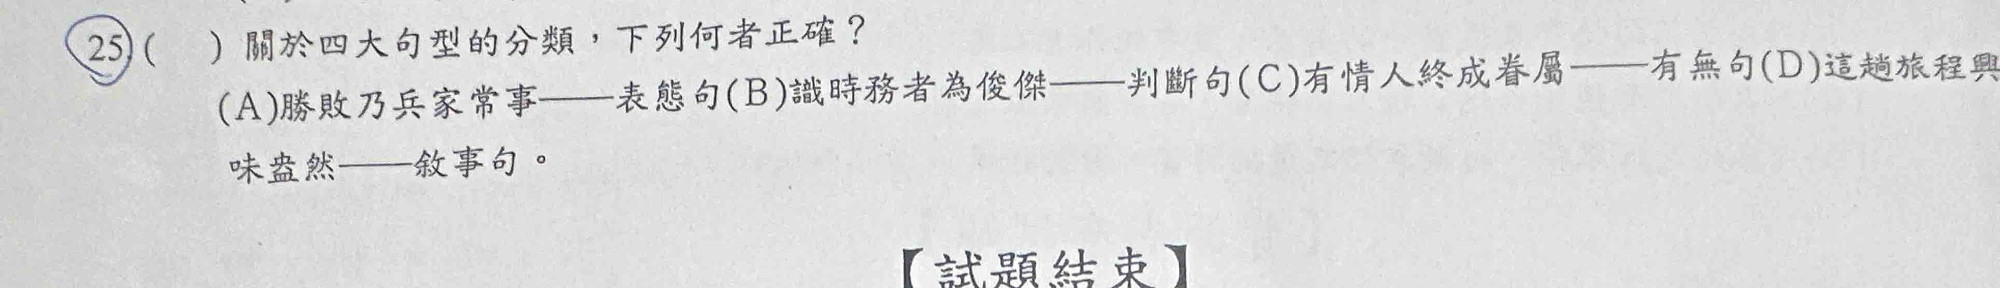 25 (　) 關於四大句型的分類，下列何者正確？
(A)勝敗乃兵家常事——表態句(B)識時務者為俊傑——判斷句(C)有情人終成眷屬——有無句(D)這趟旅程興
味盎然——敘事句。
【試題結束】